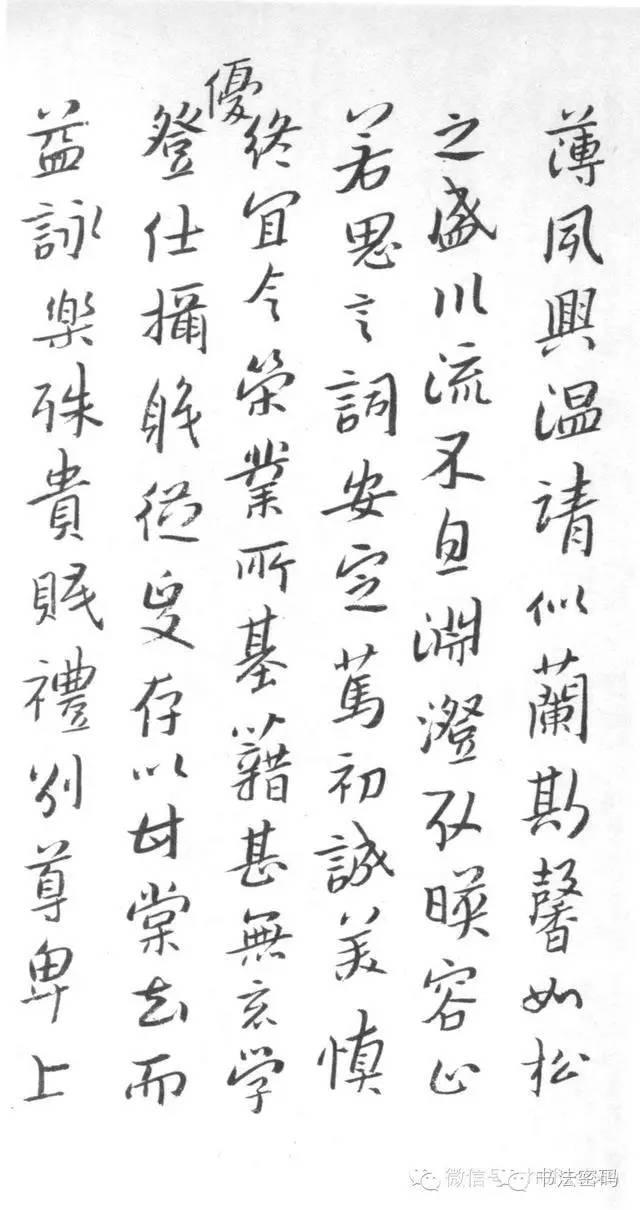 薄夙興温請似蘭斯馨如松
之盛川流不息淵澄取暎容止
若思言詞安定篤初誠美慎
終宜令榮業所基籍甚無竟学
優登仕攝職從政存以甘棠去而
益詠樂殊貴賤禮別尊卑上
微信号
书法密码